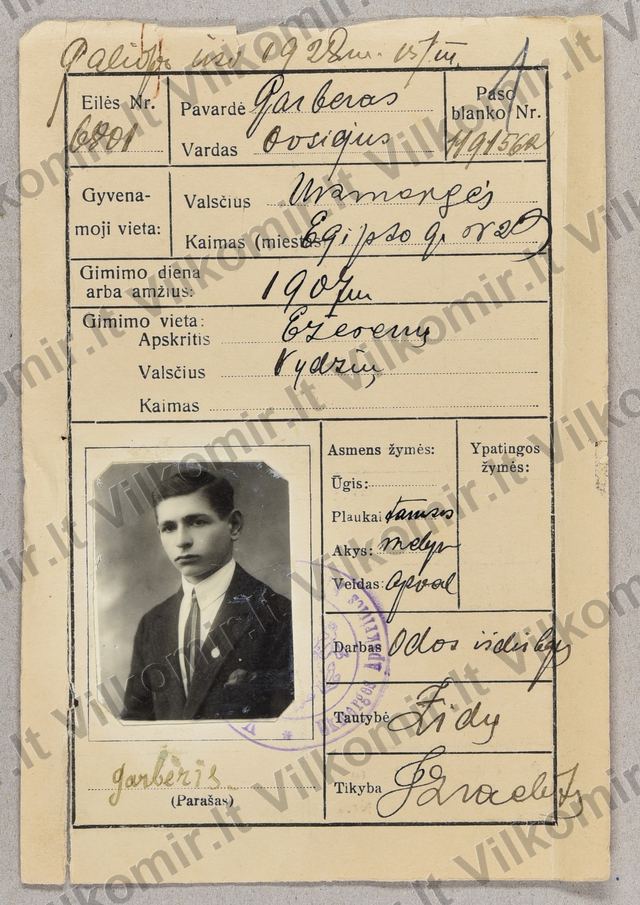 1928 m.
Eilės Nr.
6801
Pavardė Garberas
Vardas Ovsiejus
Paso blanko Nr.
Gyvenamoji vieta:
Valsčius Ukmergės
Kaimas (miestas) Egipto g. № 20
Gimimo diena
arba amžius: 1907 m
Gimimo vieta:
Apskritis Ežerenų
Valsčius Vydžių
Kaimas
Asmens žymės:
Ūgis:
Plaukai tamsūs
Akys: mėlyn
Veidas: apval
Ypatingos
žymės:
Darbas Odos išdirbėjas
Tautybė Žydų
Tikyba Izraelitų
garberis
(Parašas)
Ukmergės Apskrities
Vilkomir.lt